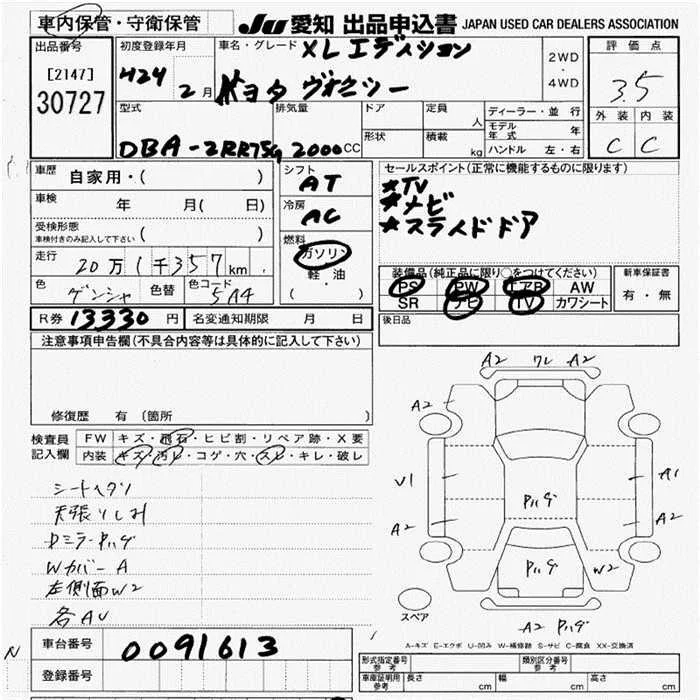 車内保管・守衛保管
JU 愛知 出品申込書 JAPAN USED CAR DEALERS ASSOCIATION
出品番号
[2147]
30727
初度登録年月
H24 2月
車名・グレード XL エディション
トヨタ ヴォクシー
2WD
・
4WD
評価点
3.5
外装 内装
C C
型式
DBA-ZRR75G
排気量
2000cc
ドア
定員
人
形状
積載
kg
ディーラー・並行
モデル年式 年
ハンドル 左・右
車歴
自家用・( )
車検
年 月( 日)
受検形態
車検付きのみ記入して下さい ( )
走行
20万1千357km
色
ゲンシャ
色替
色コード
5A4
シフト
AT
冷房
AC
燃料
ガソリン
軽・油
( ・ )
セールスポイント(正常に機能するものに限ります)
★TV
★ナビ
★スライドドア
装備品(純正品に限り○をつけてください)
PS PW エアB AW
SR ナビ TV カワシート
新車保証書
有・無
後日品
R券 13330円 名変通知期限 月 日
注意事項申告欄(不具合内容等は具体的に記入して下さい)
修復歴 有(箇所 )
検査員
記入欄
FW キズ・飛石・ヒビ割・リペア跡・X要
内装 キズ・汚レ・コゲ・穴・スレ・キレ・破レ
シートヘタリ
天張りしみ
Wカバー A
左側面W2
各AU
A2 ワレ A2
A2
V1
A2
A1
A2
W2
A2
スペア
A-キズ E-エクボ U-凹み W-補修跡 S-サビ C-腐食 XX-交換済
N
車台番号
0091613
登録番号
形式指定番号
参考
類別区分番号
参考
車庫証明用
参考
長さ cm 幅 cm 高さ cm